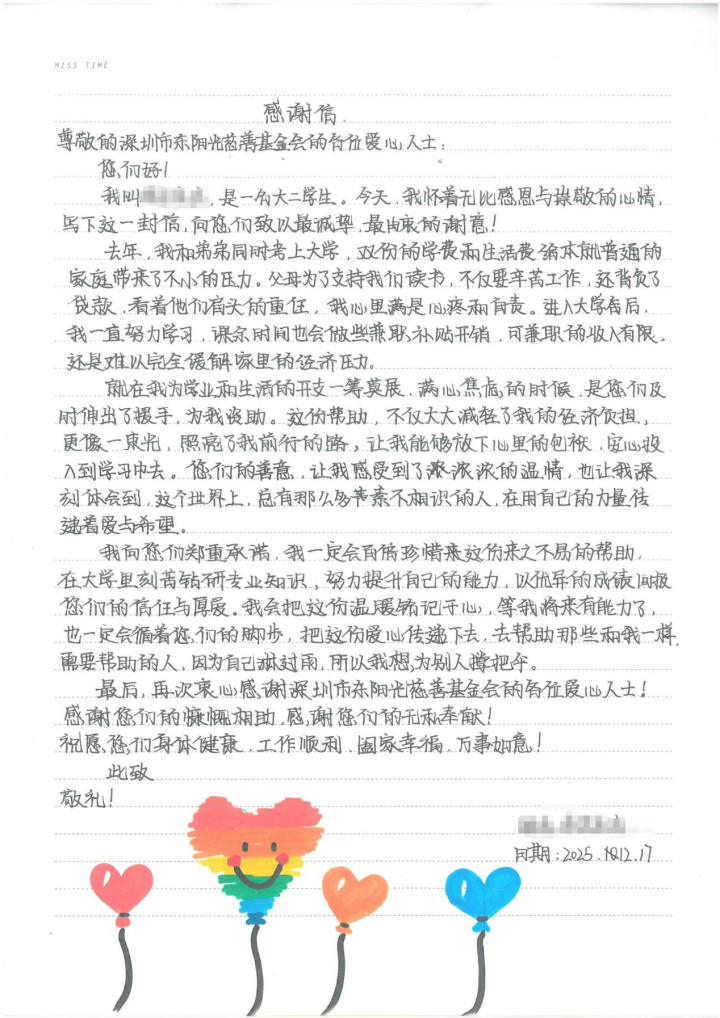 MISS TIME
感谢信.
尊敬的深圳市东阳光慈善基金会的各位爱心人士：
您们好！
我叫，是一名大二学生。今天，我怀着无比感恩与崇敬的心情，
写下这一封信，向您们致以最诚挚、最由衷的谢意！
去年，我和弟弟同时考上大学，双份的学费和生活费给本就普通的
家庭带来了不小的压力。父母为了支持我们读书，不仅要辛苦工作，还背负了
贷款，看着他们肩头的重任，我心里满是心疼和自责。进入大学后，
我一直努力学习，课余时间也会做些兼职补贴开销，可兼职的收入有限，
还是难以完全缓解家里的经济压力。
就在我为学业和生活的开支一筹莫展、满心焦虑的时候，是您们及
时伸出了援手，为我资助。这份帮助，不仅大大减轻了我的经济负担，
更像一束光，照亮了我前行的路，让我能够放下心里的包袱，安心投
入到学习中去。您们的善意，让我感受到了浓浓的温情，也让我深
刻体会到，这个世界上，总有那么多素不相识的人，在用自己的力量传
递着爱与希望。
我向您们郑重承诺，我一定会百倍珍惜来这份来之不易的帮助，
在大学里刻苦钻研专业知识、努力提升自己的能力，以优异的成绩回报
您们的信任与厚爱。我会把这份温暖铭记于心，等我将来有能力了，
也一定会循着您们的脚步，把这份爱心传递下去，去帮助那些和我一样
需要帮助的人，因为自己淋过雨，所以我想为别人撑把伞。
最后，再次衷心感谢深圳市东阳光慈善基金会的各位爱心人士！
感谢您们的慷慨相助，感谢您们的无私奉献！
祝愿您们身体健康、工作顺利、阖家幸福、万事如意！
此致
敬礼！
日期：2025.12.17